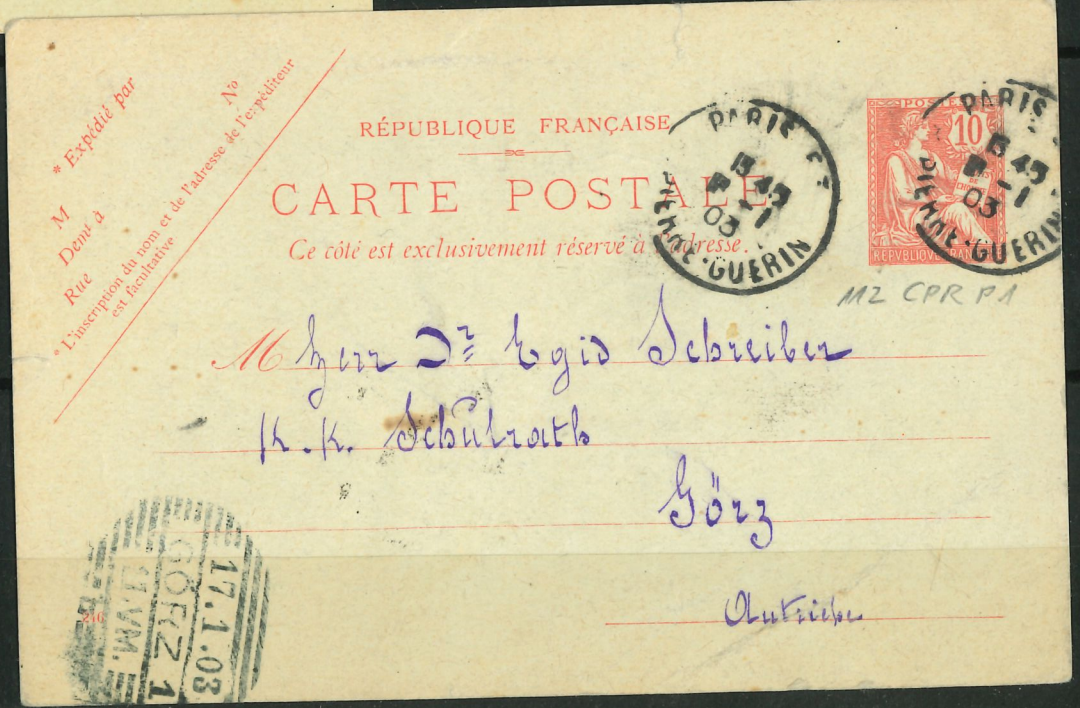 * Expédié par
M
Demt à
Rue
N°
* L'inscription du nom et de l'adresse de l'expéditeur
est facultative
RÉPUBLIQUE FRANÇAISE
CARTE POSTALE
Ce côté est exclusivement réservé à l'adresse.
PARIS
45
-1
03
PIERRE-GUERIN
POSTES
10
REPVBLIQVE FRANÇAISE
PARIS
45
-1
03
PIERRE-GUERIN
112 CPR P1
M Herr Dr Egid Schreiber
K. K. Schulrath
Görz
Autriche
216
17.1.03
GÖRZ 1
11.VM.